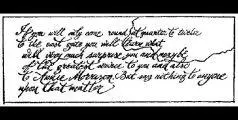 If you will only come round at quarter to twelve
to the east gate you will learn what
will very much surprise you and maybe
be of the greatest service to you and also
to Annie Morrison. But say nothing to anyone
upon that matter